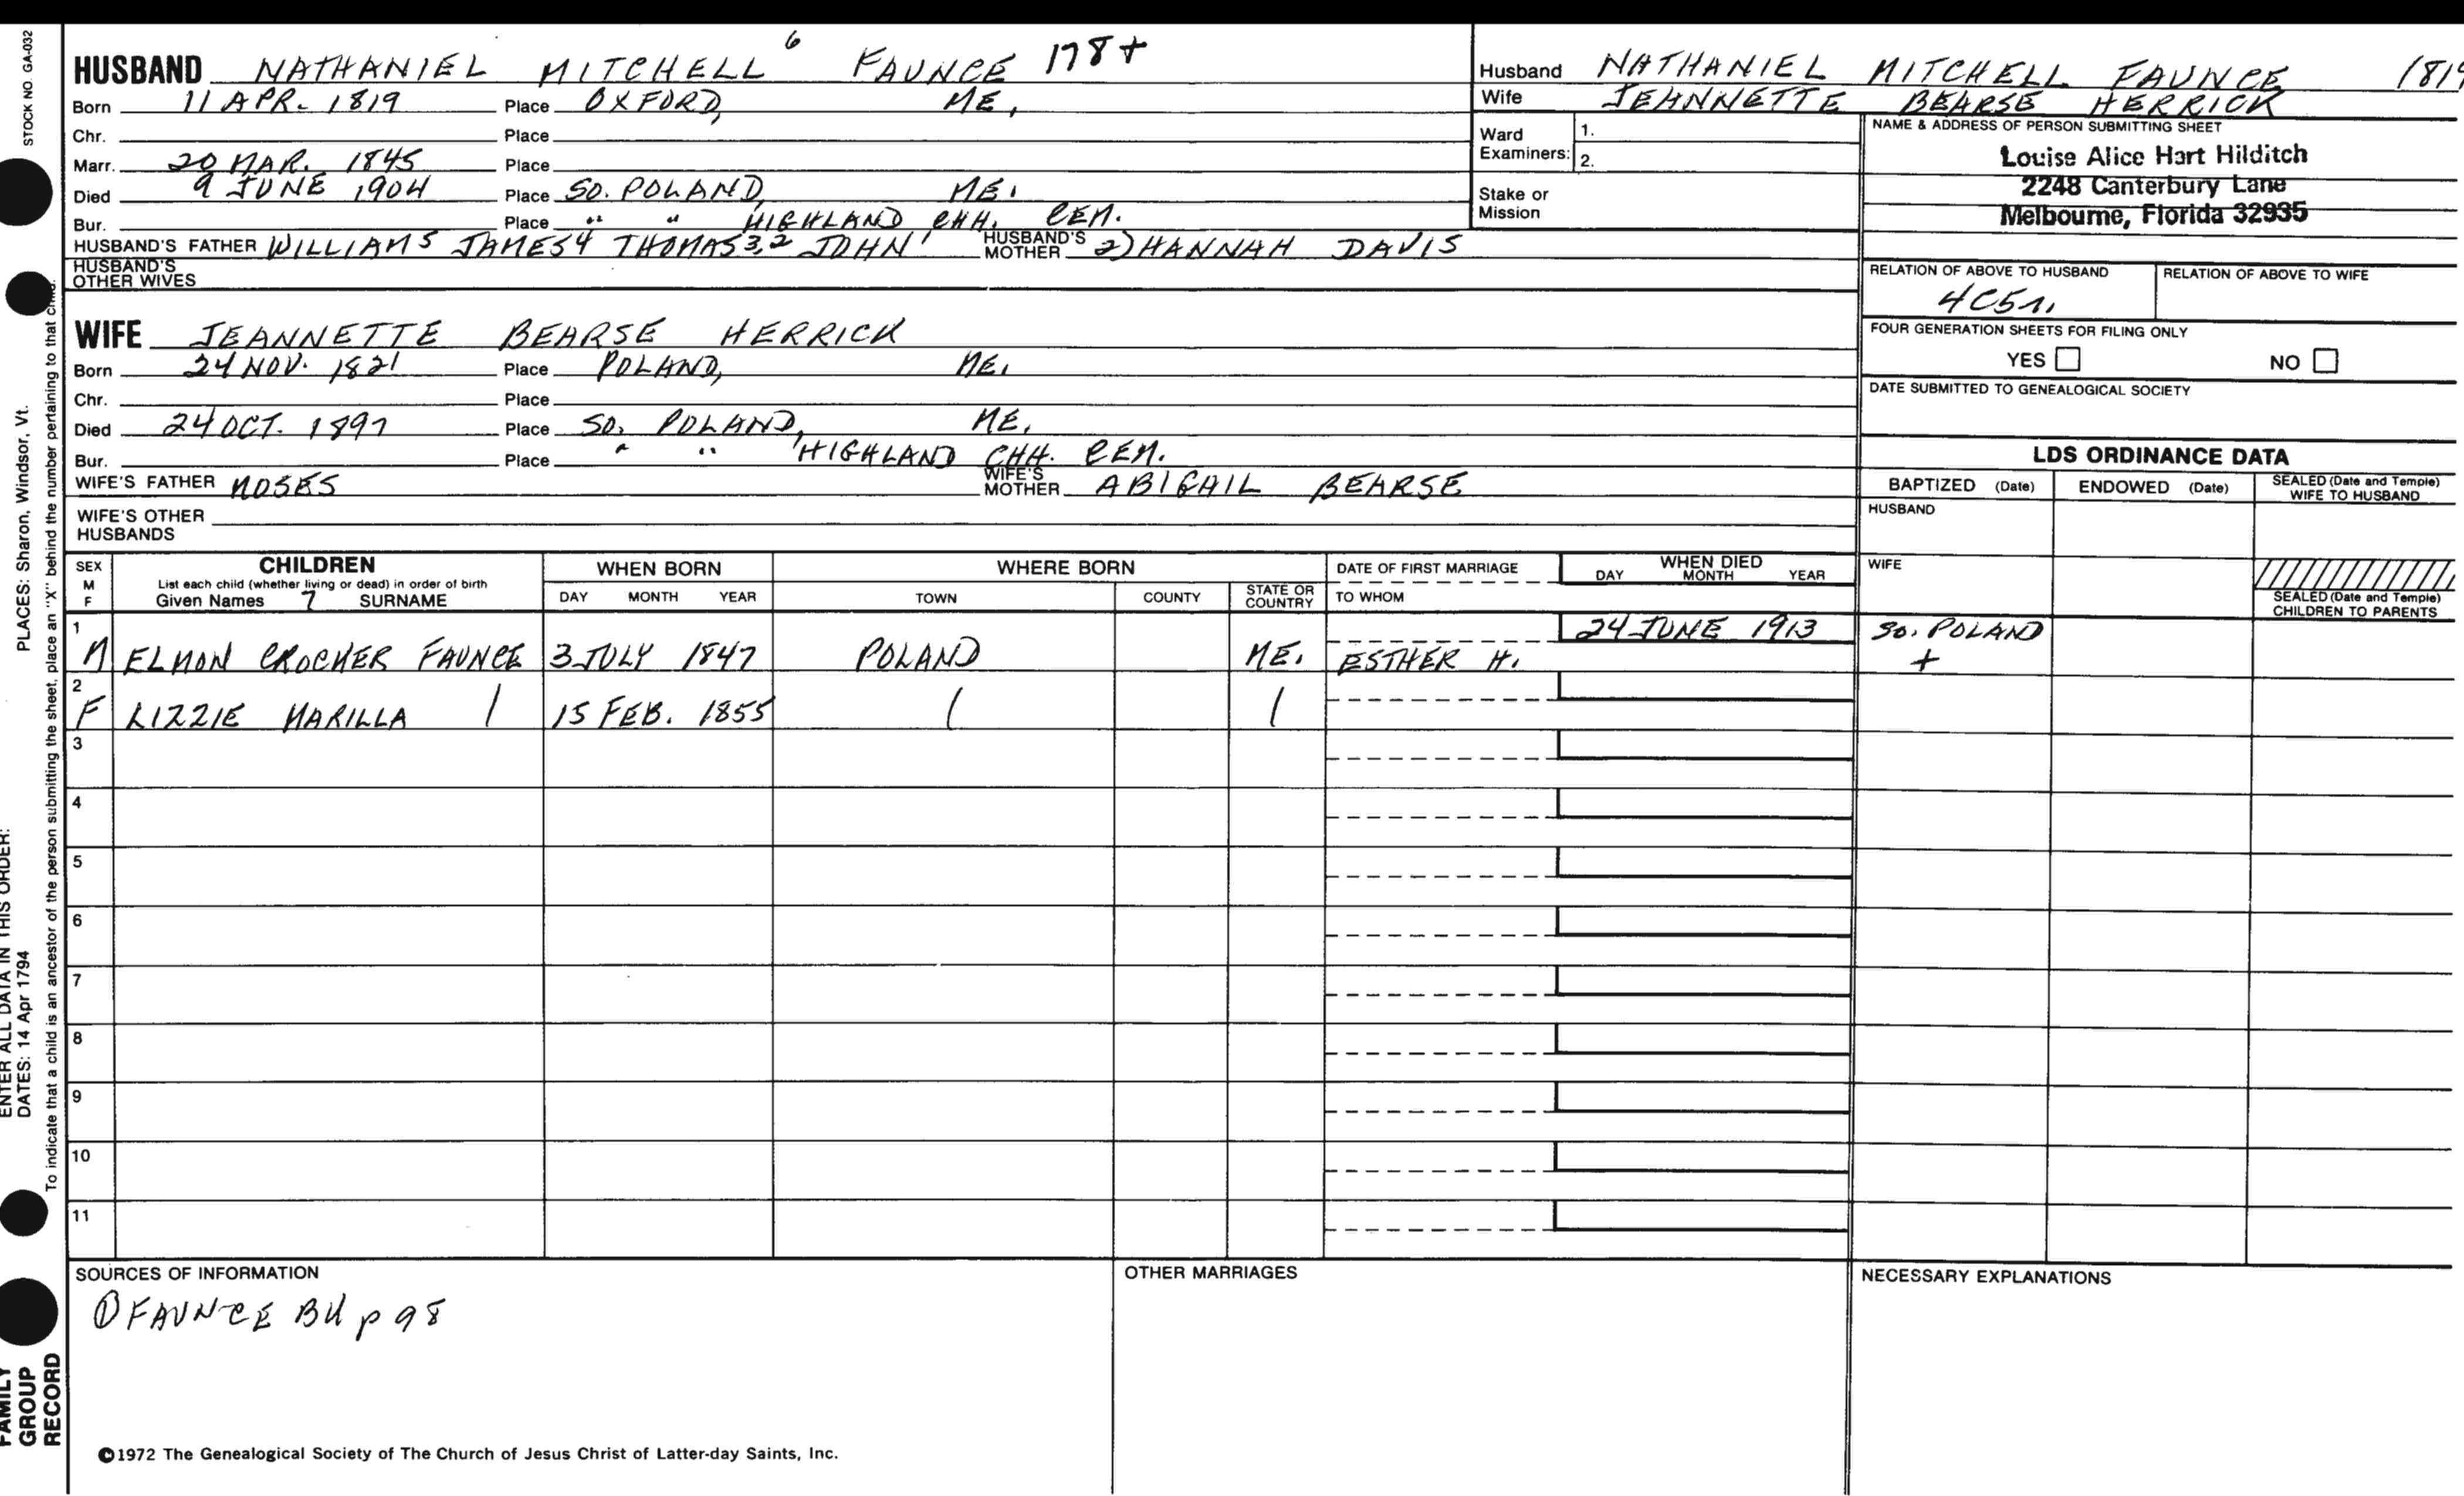 STOCK NO. GA-032
HUSBAND NATHANIEL MITCHELL 6 FAUNCE 178+
Born 11 APR. 1819 Place OXFORD, ME.
Chr. Place
Marr. 20 MAR. 1845 Place
Died 9 JUNE 1904 Place SO. POLAND, ME.
Bur. Place " " HIGHLAND CHH. CEM.
HUSBAND'S FATHER WILLIAM 5 JAMES 4 THOMAS 3,2 JOHN 1 HUSBAND'S MOTHER 2) HANNAH DAVIS
HUSBAND'S OTHER WIVES
WIFE JEANNETTE BEARSE HERRICK
Born 24 NOV. 1821 Place POLAND, ME.
Chr. Place
Died 24 OCT. 1897 Place SO. POLAND, ME.
Bur. Place " " HIGHLAND CHH. CEM.
WIFE'S FATHER MOSES WIFE'S MOTHER ABIGAIL BEARSE
WIFE'S OTHER HUSBANDS
Husband NATHANIEL MITCHELL FAUNCE 1819
Wife JEANNETTE BEARSE HERRICK
Ward Examiners: 1.
2.
Stake or Mission
NAME & ADDRESS OF PERSON SUBMITTING SHEET
Louise Alice Hart Hilditch
2248 Canterbury Lane
Melbourne, Florida 32935
RELATION OF ABOVE TO HUSBAND RELATION OF ABOVE TO WIFE
4C5r.
FOUR GENERATION SHEETS FOR FILING ONLY
YES NO
DATE SUBMITTED TO GENEALOGICAL SOCIETY
LDS ORDINANCE DATA
BAPTIZED (Date) ENDOWED (Date) SEALED (Date and Temple) WIFE TO HUSBAND
HUSBAND
WIFE
SEALED (Date and Temple) CHILDREN TO PARENTS
SEX M F CHILDREN WHEN BORN WHERE BORN DATE OF FIRST MARRIAGE WHEN DIED
List each child (whether living or dead) in order of birth
Given Names 7 SURNAME DAY MONTH YEAR TOWN COUNTY STATE OR COUNTRY TO WHOM DAY MONTH YEAR
1 M ELMON CROCKER FAUNCE 3 JULY 1847 POLAND ME. ESTHER H. 24 JUNE 1913 SO. POLAND +
2 F LIZZIE MARILLA | 15 FEB. 1855 ( (
3
4
5
6
7
8
9
10
11
SOURCES OF INFORMATION
① FAUNCE BK p 98
OTHER MARRIAGES
NECESSARY EXPLANATIONS
©1972 The Genealogical Society of The Church of Jesus Christ of Latter-day Saints, Inc.
FAMILY GROUP RECORD
ENTER ALL DATA IN THIS ORDER:
DATES: 14 Apr 1794
PLACES: Sharon, Windsor, Vt.
To indicate that a child is an ancestor of the person submitting the sheet, place an "X" behind the number pertaining to that child.